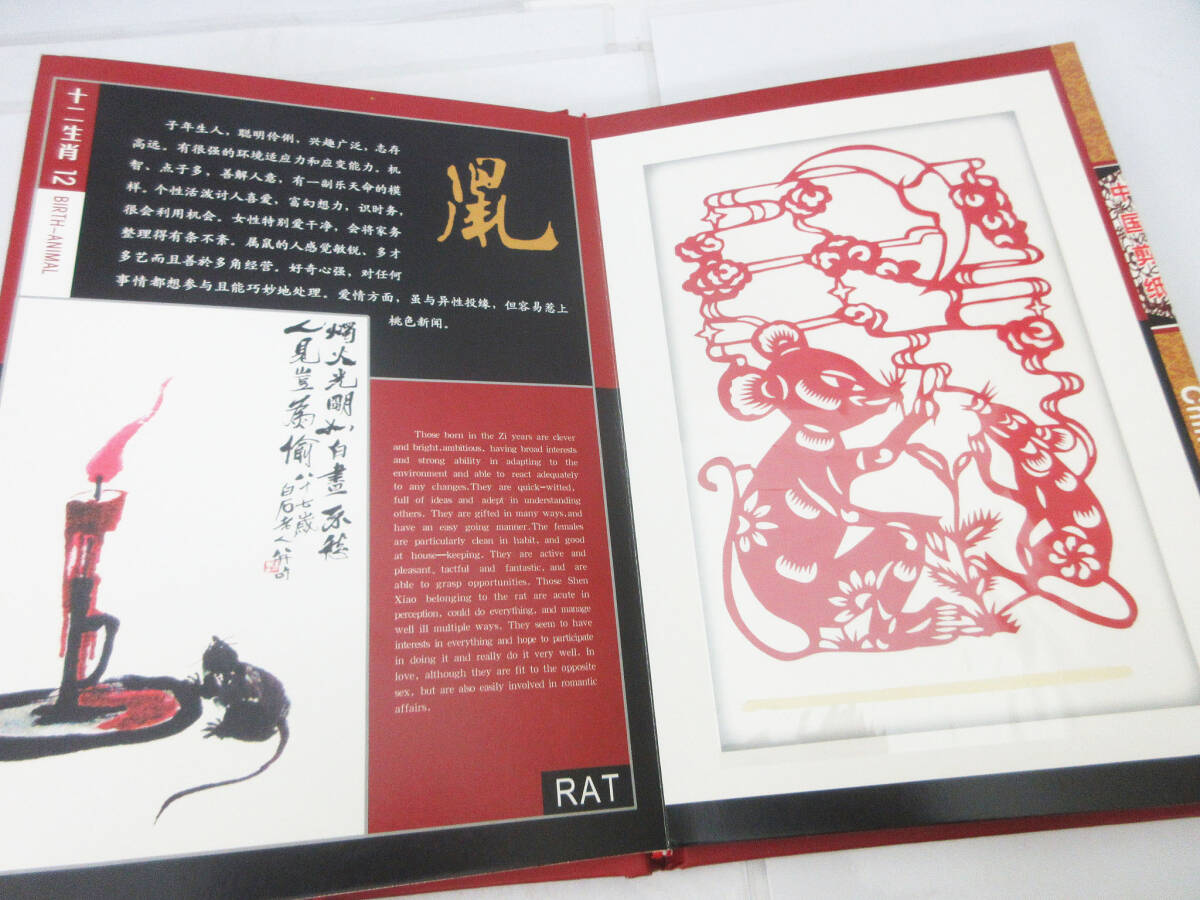 十二生肖 12
BIRTH-ANIMAL
子年生人，聪明伶俐，兴趣广泛，志存
高远。有很强的环境适应力和应变能力。机
智、点子多，善解人意，有一副乐天命的模
样。个性活泼讨人喜爱，富幻想力，识时务，
很会利用机会。女性特别爱干净，会将家务
整理得有条不紊。属鼠的人感觉敏锐、多才
多艺而且善於多角经营。好奇心强，对任何
事情都想参与且能巧妙地处理。爱情方面，虽与异性投缘，但容易惹上
桃色新闻。
鼠
烛火光明如白昼不愁
人见岂为偷
八十七岁
白石老人并句
Those born in the Zi years are clever
and bright,ambitious, having broad interests
and strong ability in adapting to the
environment and able to react adequately
to any changes.They are quick-witted,
full of ideas and adept in understanding
others. They are gifted in many ways,and
have an easy going manner.The females
are particularly clean in habit, and good
at house—keeping. They are active and
pleasant, tactful and fantastic, and are
able to grasp opportunities. Those Shen
Xiao belonging to the rat are acute in
perception, could do everything, and manage
well ill multiple ways. They seem to have
interests in everything and hope to participate
in doing it and really do it very well. In
love, although they are fit to the opposite
sex, but are also easily involved in romantic
affairs.
RAT
中国剪纸